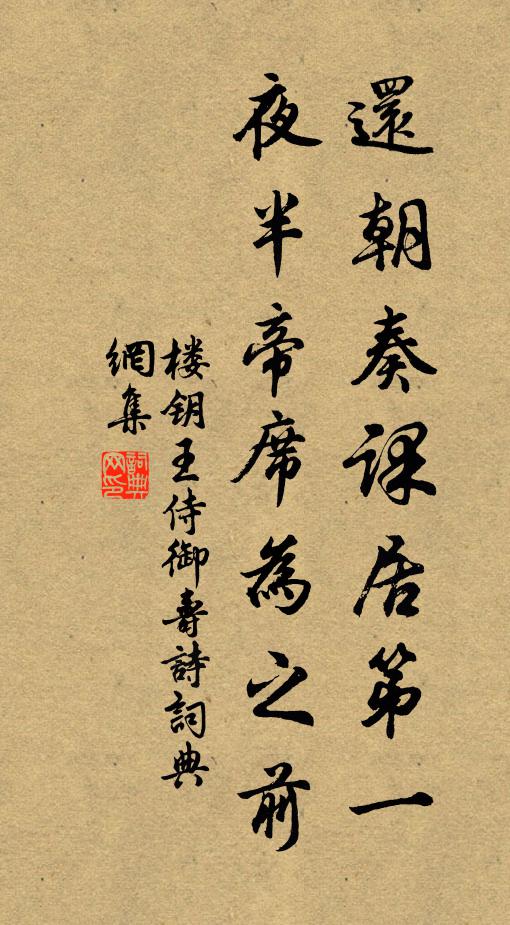 還朝奏課居第一
夜半帝席為之前
楼钥王侍御壽詩詞典
網集
詞典
网印